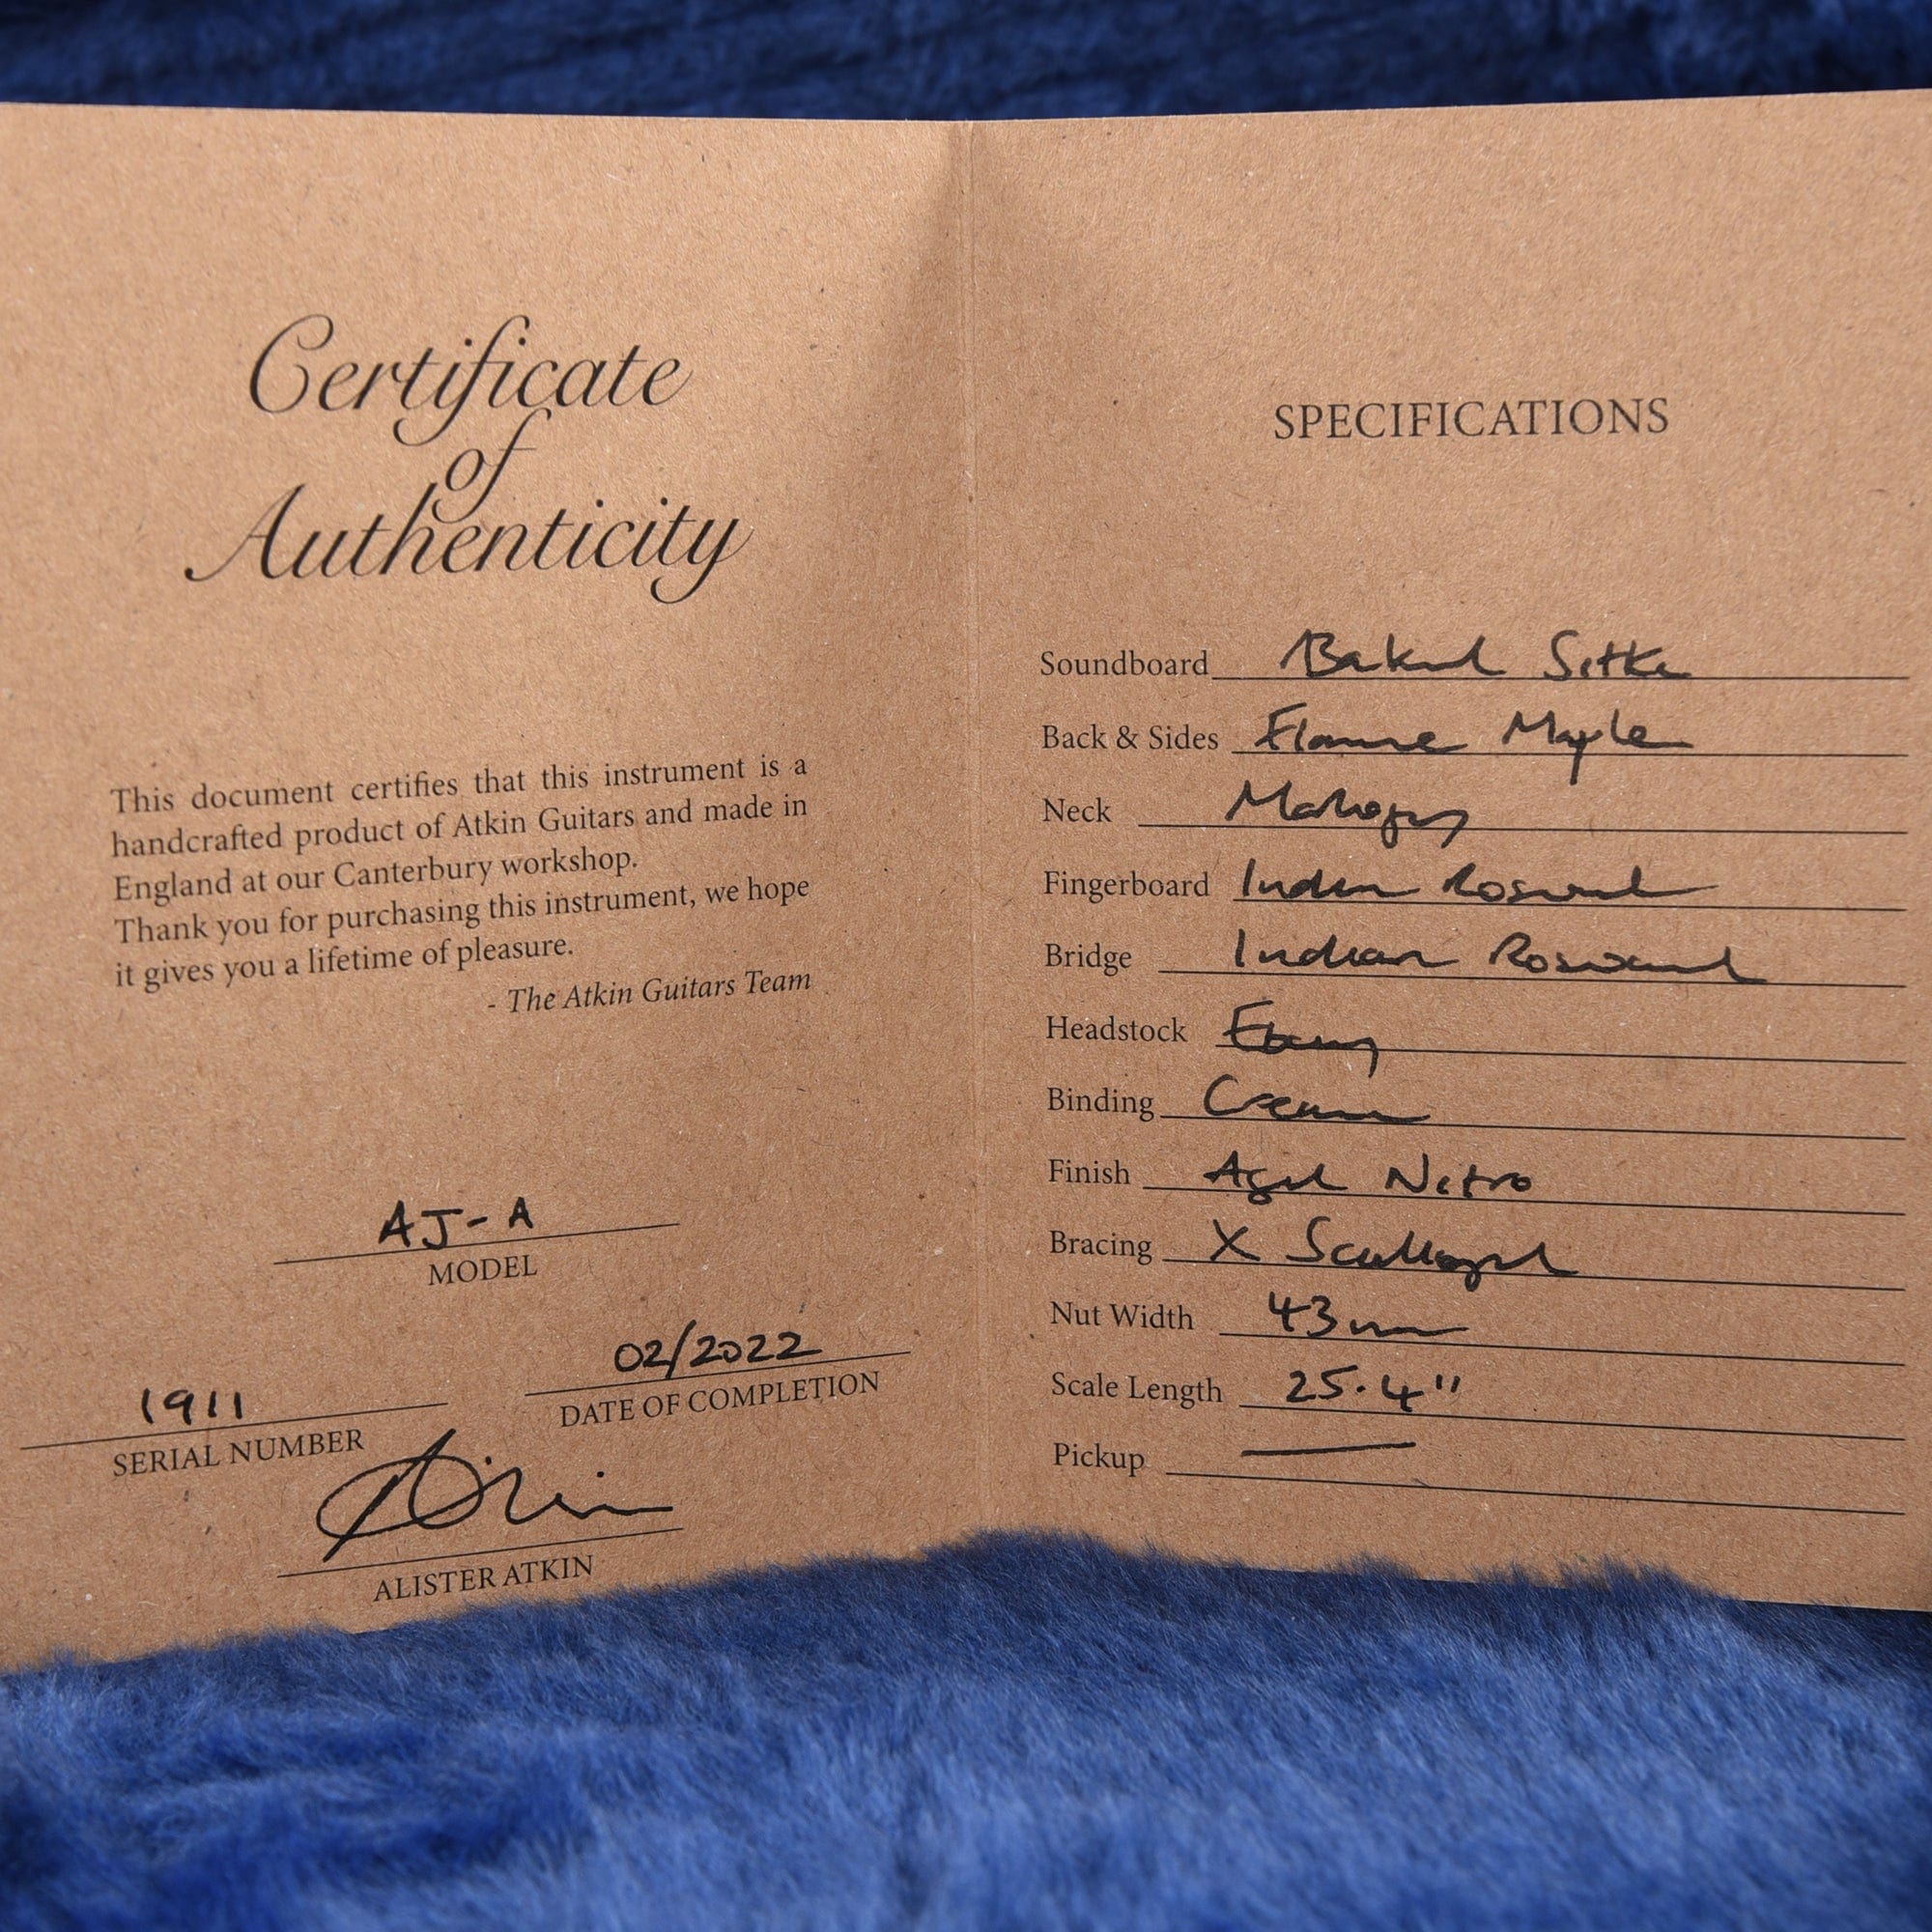 Certificate
of
Authenticity
This document certifies that this instrument is a
handcrafted product of Atkin Guitars and made in
England at our Canterbury workshop.
Thank you for purchasing this instrument, we hope
it gives you a lifetime of pleasure.
- The Atkin Guitars Team
AJ-A
MODEL
1911
SERIAL NUMBER
02/2022
DATE OF COMPLETION
ALISTER ATKIN
SPECIFICATIONS
Soundboard Baked Sitka
Back & Sides Flame Maple
Neck Mahogany
Fingerboard Indian Rosewood
Bridge Indian Rosewood
Headstock Ebony
Binding Cream
Finish Aged Nitro
Bracing X Scalloped
Nut Width 43mm
Scale Length 25.4"
Pickup —